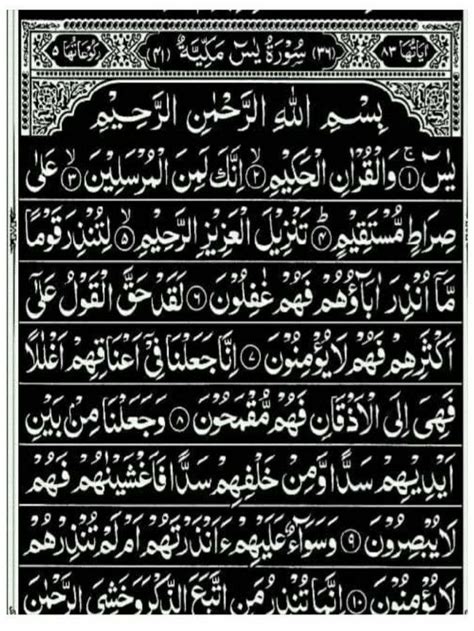 اٰیَاتُهَا ۸۳ (۳۶) سُوْرَةُ یٰسٓ مَكِّیَّةٌ (۴۱) رُكُوْعَاتُهَا ۵
بِسْمِ اللّٰهِ الرَّحْمٰنِ الرَّحِیْمِ
یٰسٓ ۚ﴿۱﴾ وَالْقُرْاٰنِ الْحَكِیْمِ ۙ﴿۲﴾ اِنَّكَ لَمِنَ الْمُرْسَلِیْنَ ۙ﴿۳﴾ عَلٰی
صِرَاطٍ مُّسْتَقِیْمٍ ؕ﴿۴﴾ تَنْزِیْلَ الْعَزِیْزِ الرَّحِیْمِ ۙ﴿۵﴾ لِتُنْذِرَ قَوْمًا
مَّاۤ اُنْذِرَ اٰبَآؤُهُمْ فَهُمْ غٰفِلُوْنَ ﴿۶﴾ لَقَدْ حَقَّ الْقَوْلُ عَلٰۤی
اَكْثَرِهِمْ فَهُمْ لَا یُؤْمِنُوْنَ ﴿۷﴾ اِنَّا جَعَلْنَا فِیْۤ اَعْنَاقِهِمْ اَغْلٰلًا
فَهِیَ اِلَی الْاَذْقَانِ فَهُمْ مُّقْمَحُوْنَ ﴿۸﴾ وَجَعَلْنَا مِنْۢ بَیْنِ
اَیْدِیْهِمْ سَدًّا وَّمِنْ خَلْفِهِمْ سَدًّا فَاَغْشَیْنٰهُمْ فَهُمْ
لَا یُبْصِرُوْنَ ﴿۹﴾ وَسَوَآءٌ عَلَیْهِمْ ءَاَنْذَرْتَهُمْ اَمْ لَمْ تُنْذِرْهُمْ
لَا یُؤْمِنُوْنَ ﴿۱۰﴾ اِنَّمَا تُنْذِرُ مَنِ اتَّبَعَ الذِّكْرَ وَخَشِیَ الرَّحْمٰنَ